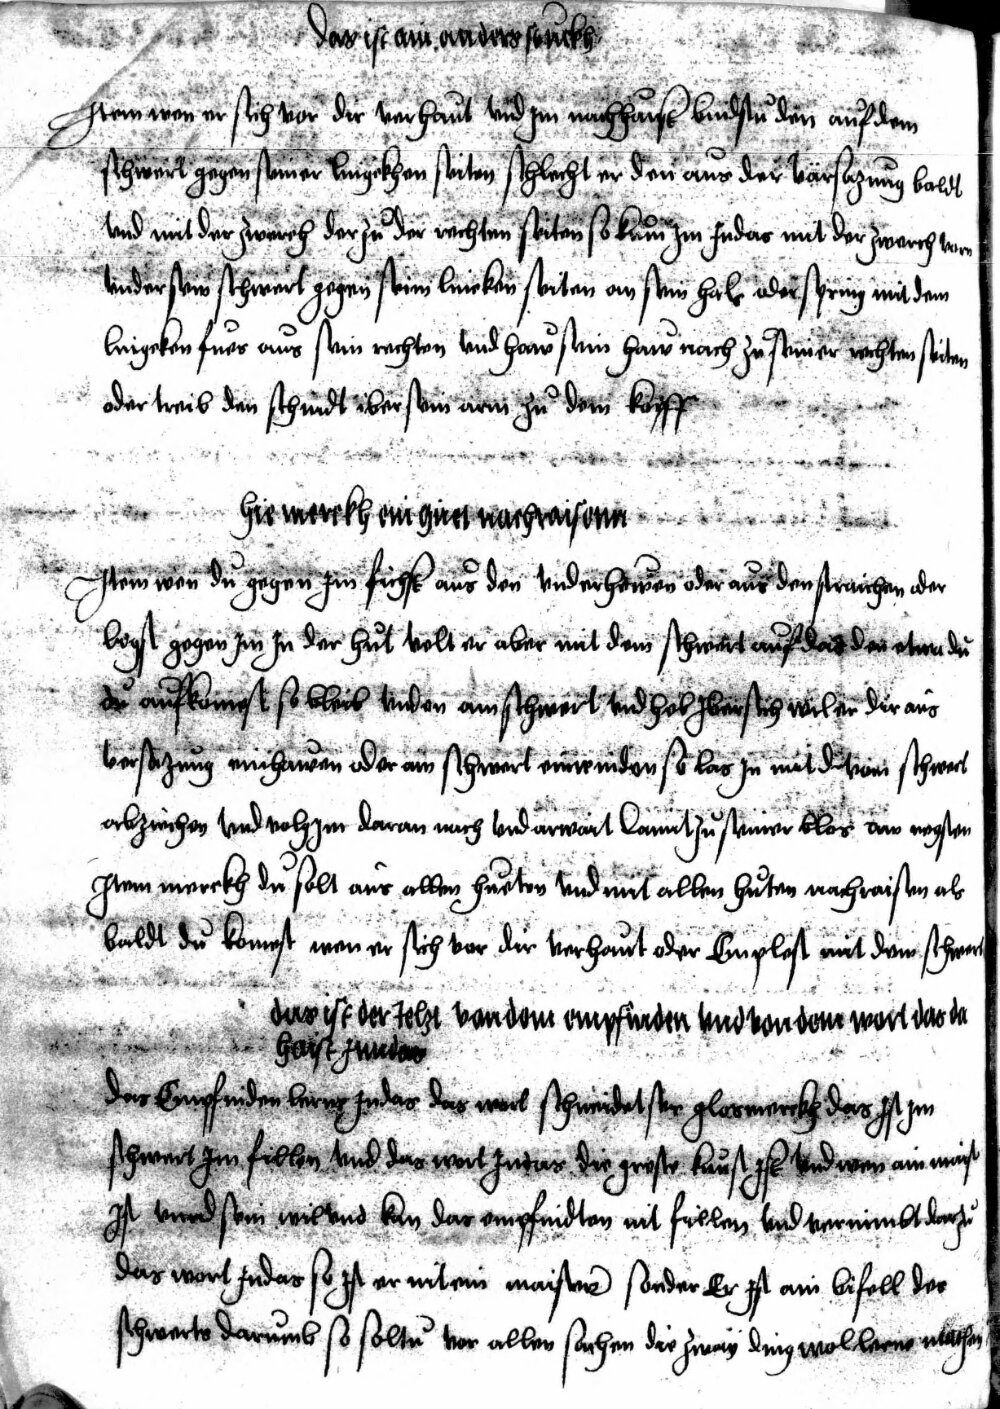 Das ist ain anders stuckh
Item wen er sich vor dir verhaut vnd im nachhaust bindstu den auf dem
schwert gegen seiner lingekhen seiten schlecht er den aus der värsazung baldt
vnd mit der zwerch der zu der rechten seiten so kum im Indas mit der zwerch vorn
vnder sein schwert gegen seini lincken seiten an sein hals oder spring mit dem
lingeken fues aus sein rechten vnd haw sein haw nach zu seiner rechten seiten
oder treib den schnidt iber sein arm zu dem kopff
hie merckh ein guet nachraisenn
Item wen du gegen im fichst aus den vnderhewen oder aus den straichen oder
legst gegen im In der hut velt er aber mit dem schwert auf das dein etwa du
du aufkomest so bleib vnden am schwert vnd heb ibersich wil er dir aus
versazung einhawen oder am schwert einwinden so las in nit du vom schwert
abziechen vnd volg im daran nach vnd arwait Damit zu seiner blos am negsten
Item merckh du solt aus allen hueten vnd mit allen huten nachraisen als
baldt du komest wen er sich vor dir verhaut oder Emplest mit dem schwert
das ist der Text von dem empfinden vnd von dem wort das da
haist Inndas
das Empfinden lerne Indas das wort schneidet ser glos merckh das ist im
schwert im fillen vnd das wort Indas die greste kunst ist vnd wen ain maist
ist vnnd sein wil vnd kan das empfindten nit fillen vnd vernimbt darzu
das wort Indas so ist er nit ein maister sonder Er ist ain bifell des
schwerts darumb so soltu vor allen sachen die zway ding wol lerne machen